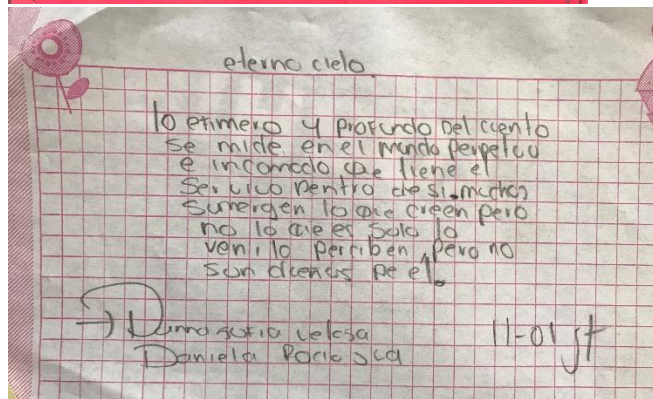 eterno cielo.
lo efimero y profundo Del cuento
se mide en el mundo perpetuo
e incomodo que tiene el
Ser vivo Dentro de si. muchos
sumergen lo que creen pero
no lo que es Solo lo
ven, lo perciben, pero no
son dueños De el.
Daniela
11-01 jt